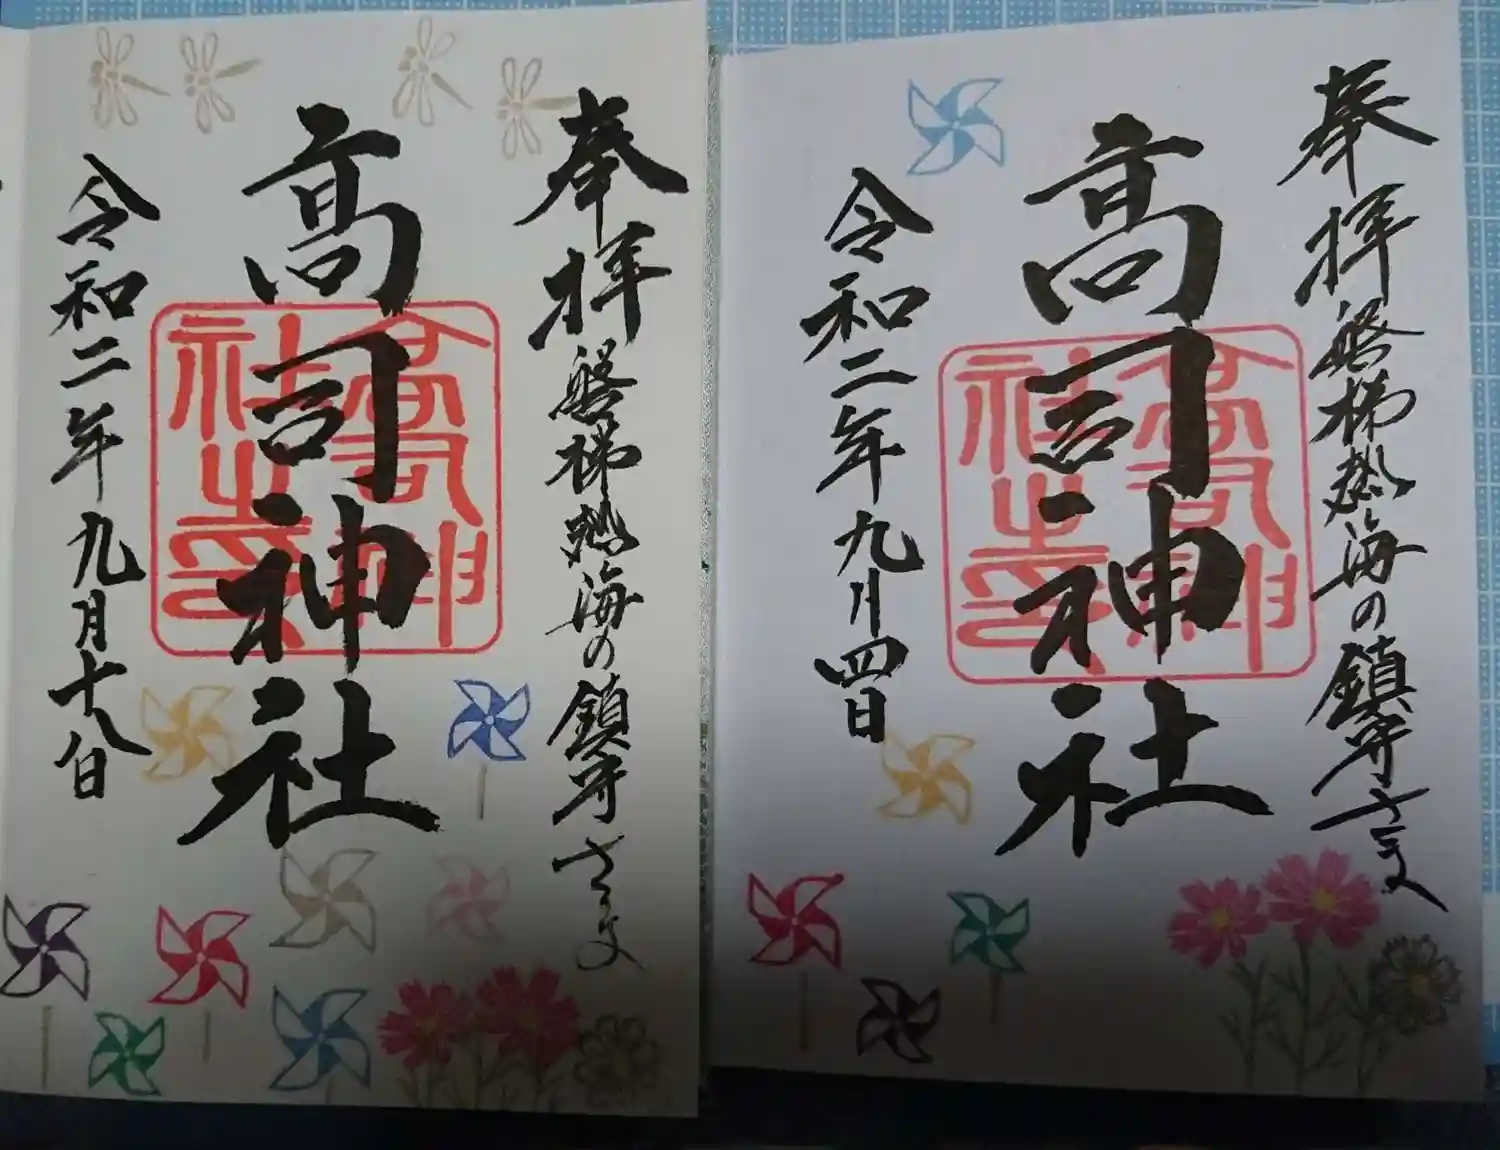 奉拝 磐梯熱海の鎮守さま
高司神社
高司神社之印
令和二年九月十八日
奉拝 磐梯熱海の鎮守さま
高司神社
高司神社之印
令和二年九月四日